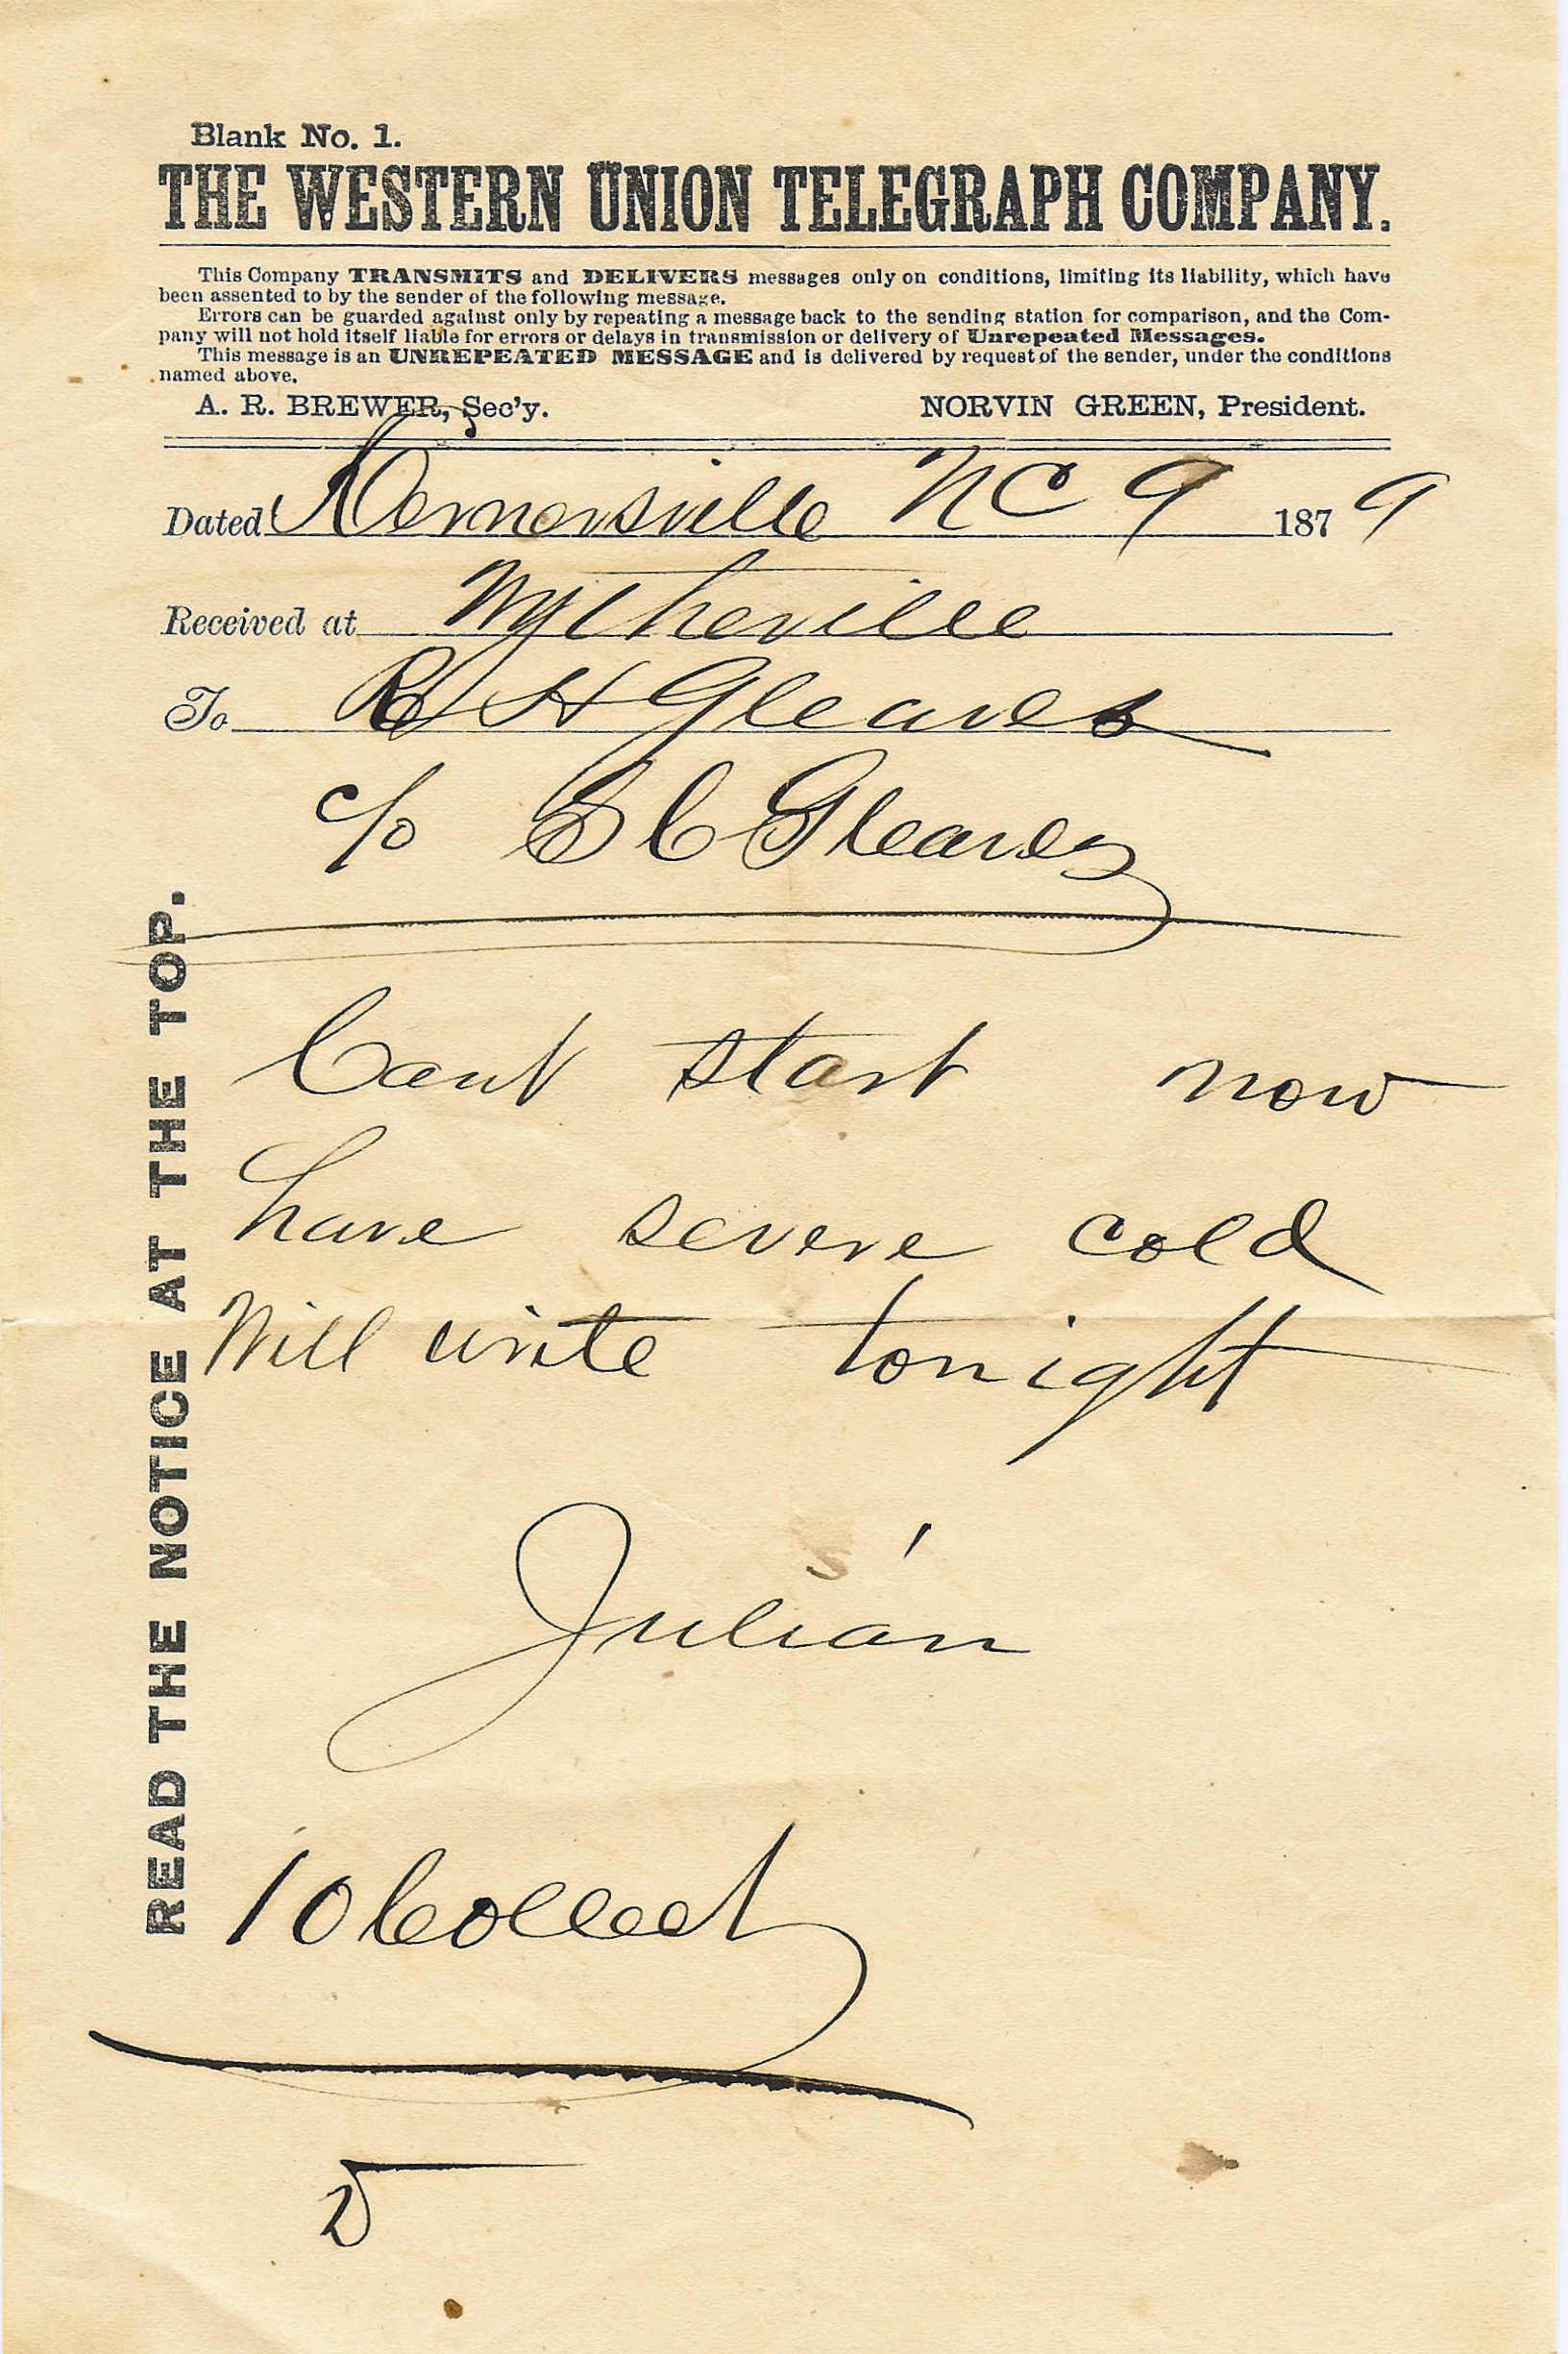 Blank No. 1.
THE WESTERN UNION TELEGRAPH COMPANY.
This Company TRANSMITS and DELIVERS messages only on conditions, limiting its liability, which have
been assented to by the sender of the following message.
Errors can be guarded against only by repeating a message back to the sending station for comparison, and the Com-
pany will not hold itself liable for errors or delays in transmission or delivery of Unrepeated Messages.
This message is an UNREPEATED MESSAGE and is delivered by request of the sender, under the conditions
named above.
A. R. BREWER, Sec'y. NORVIN GREEN, President.
Dated Kernersville NC 9 1879
Received at Wytheville
To R H Gleaves
c/o S C Gleaves
READ THE NOTICE AT THE TOP.
Cant start now
have severe cold
Will write tonight
Julian
10 Collect